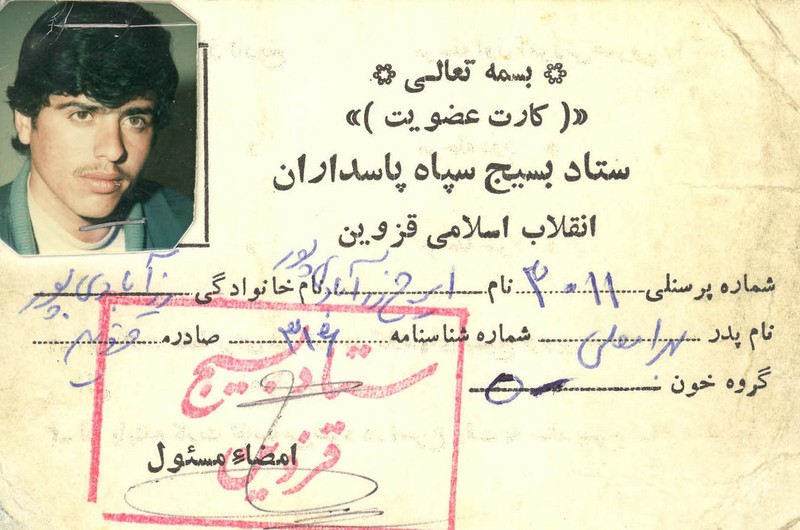 بسمه تعالی
«( کارت عضویت )»
ستاد بسیج سپاه پاسداران
انقلاب اسلامی قزوین
شماره پرسنلی ۱۱-۳ نام ایرج زرآبادی پور نام خانوادگی زرآبادی پور
نام پدر شماره شناسنامه صادره
گروه خون O
ستاد بسیج
قزوین
امضاء مسئول